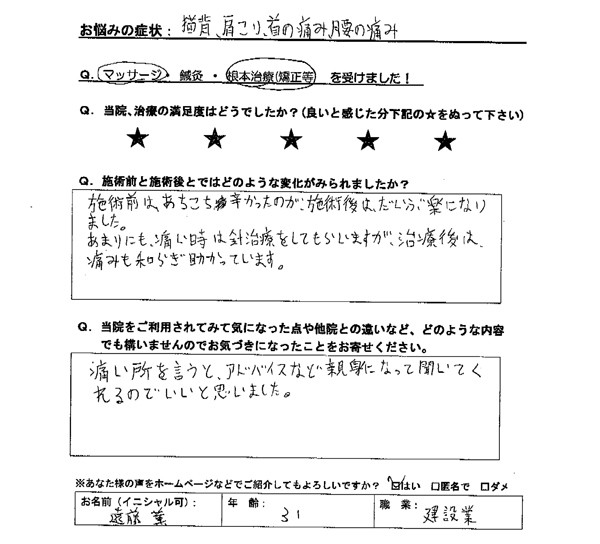 お悩みの症状: 猫背、肩こり、首の痛み、腰の痛み
Q. マッサージ・鍼灸・根本治療(矯正等 を受けました!
Q. 当院、治療の満足度はどうでしたか?(良いと感じた分下記の☆をぬって下さい)
★ ★ ★ ★ ★
Q. 施術前と施術後とではどのような変化がみられましたか?
施術前は、あちこち辛かったのが、施術後は、だいぶ楽になり
ました。
あまりにも、痛い時は針治療をしてもらいますが、治療後は、
痛みも和らぎ助かっています。
Q. 当院をご利用されてみて気になった点や他院との違いなど、どのような内容
でも構いませんのでお気づきになったことをお寄せください。
痛い所を言うと、アドバイスなど親身になって聞いてく
れるのでいいと思いました。
※あなた様の声をホームページなどでご紹介してもよろしいですか? ☑はい □匿名で □ダメ
お名前(イニシャル可): 年 齢: 職 業:
遠藤 31 建設業